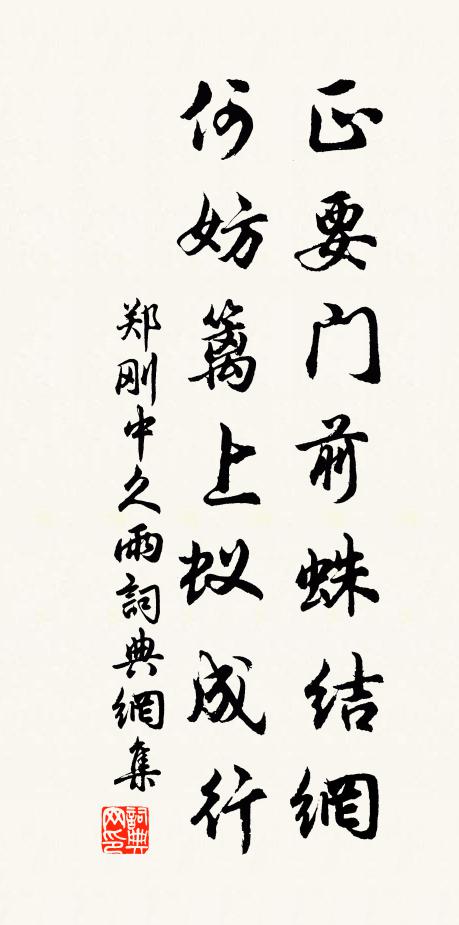 正要门前蛛结網
何妨篱上蚁成行
郑刚中久雨詞典網集
詞典网印